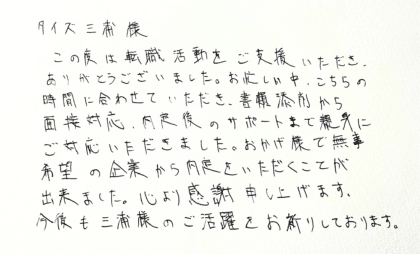 タイズ 三浦 様
この度は転職活動をご支援いただき、
ありがとうございました。お忙しい中、こちらの
時間に合わせていただき、書類添削から
面接対応、内定後のサポートまで親身に
ご対応いただきました。おかげ様で無事
希望の企業から内定をいただくことが
出来ました。心より感謝申し上げます。
今後も三浦様のご活躍をお祈りしております。